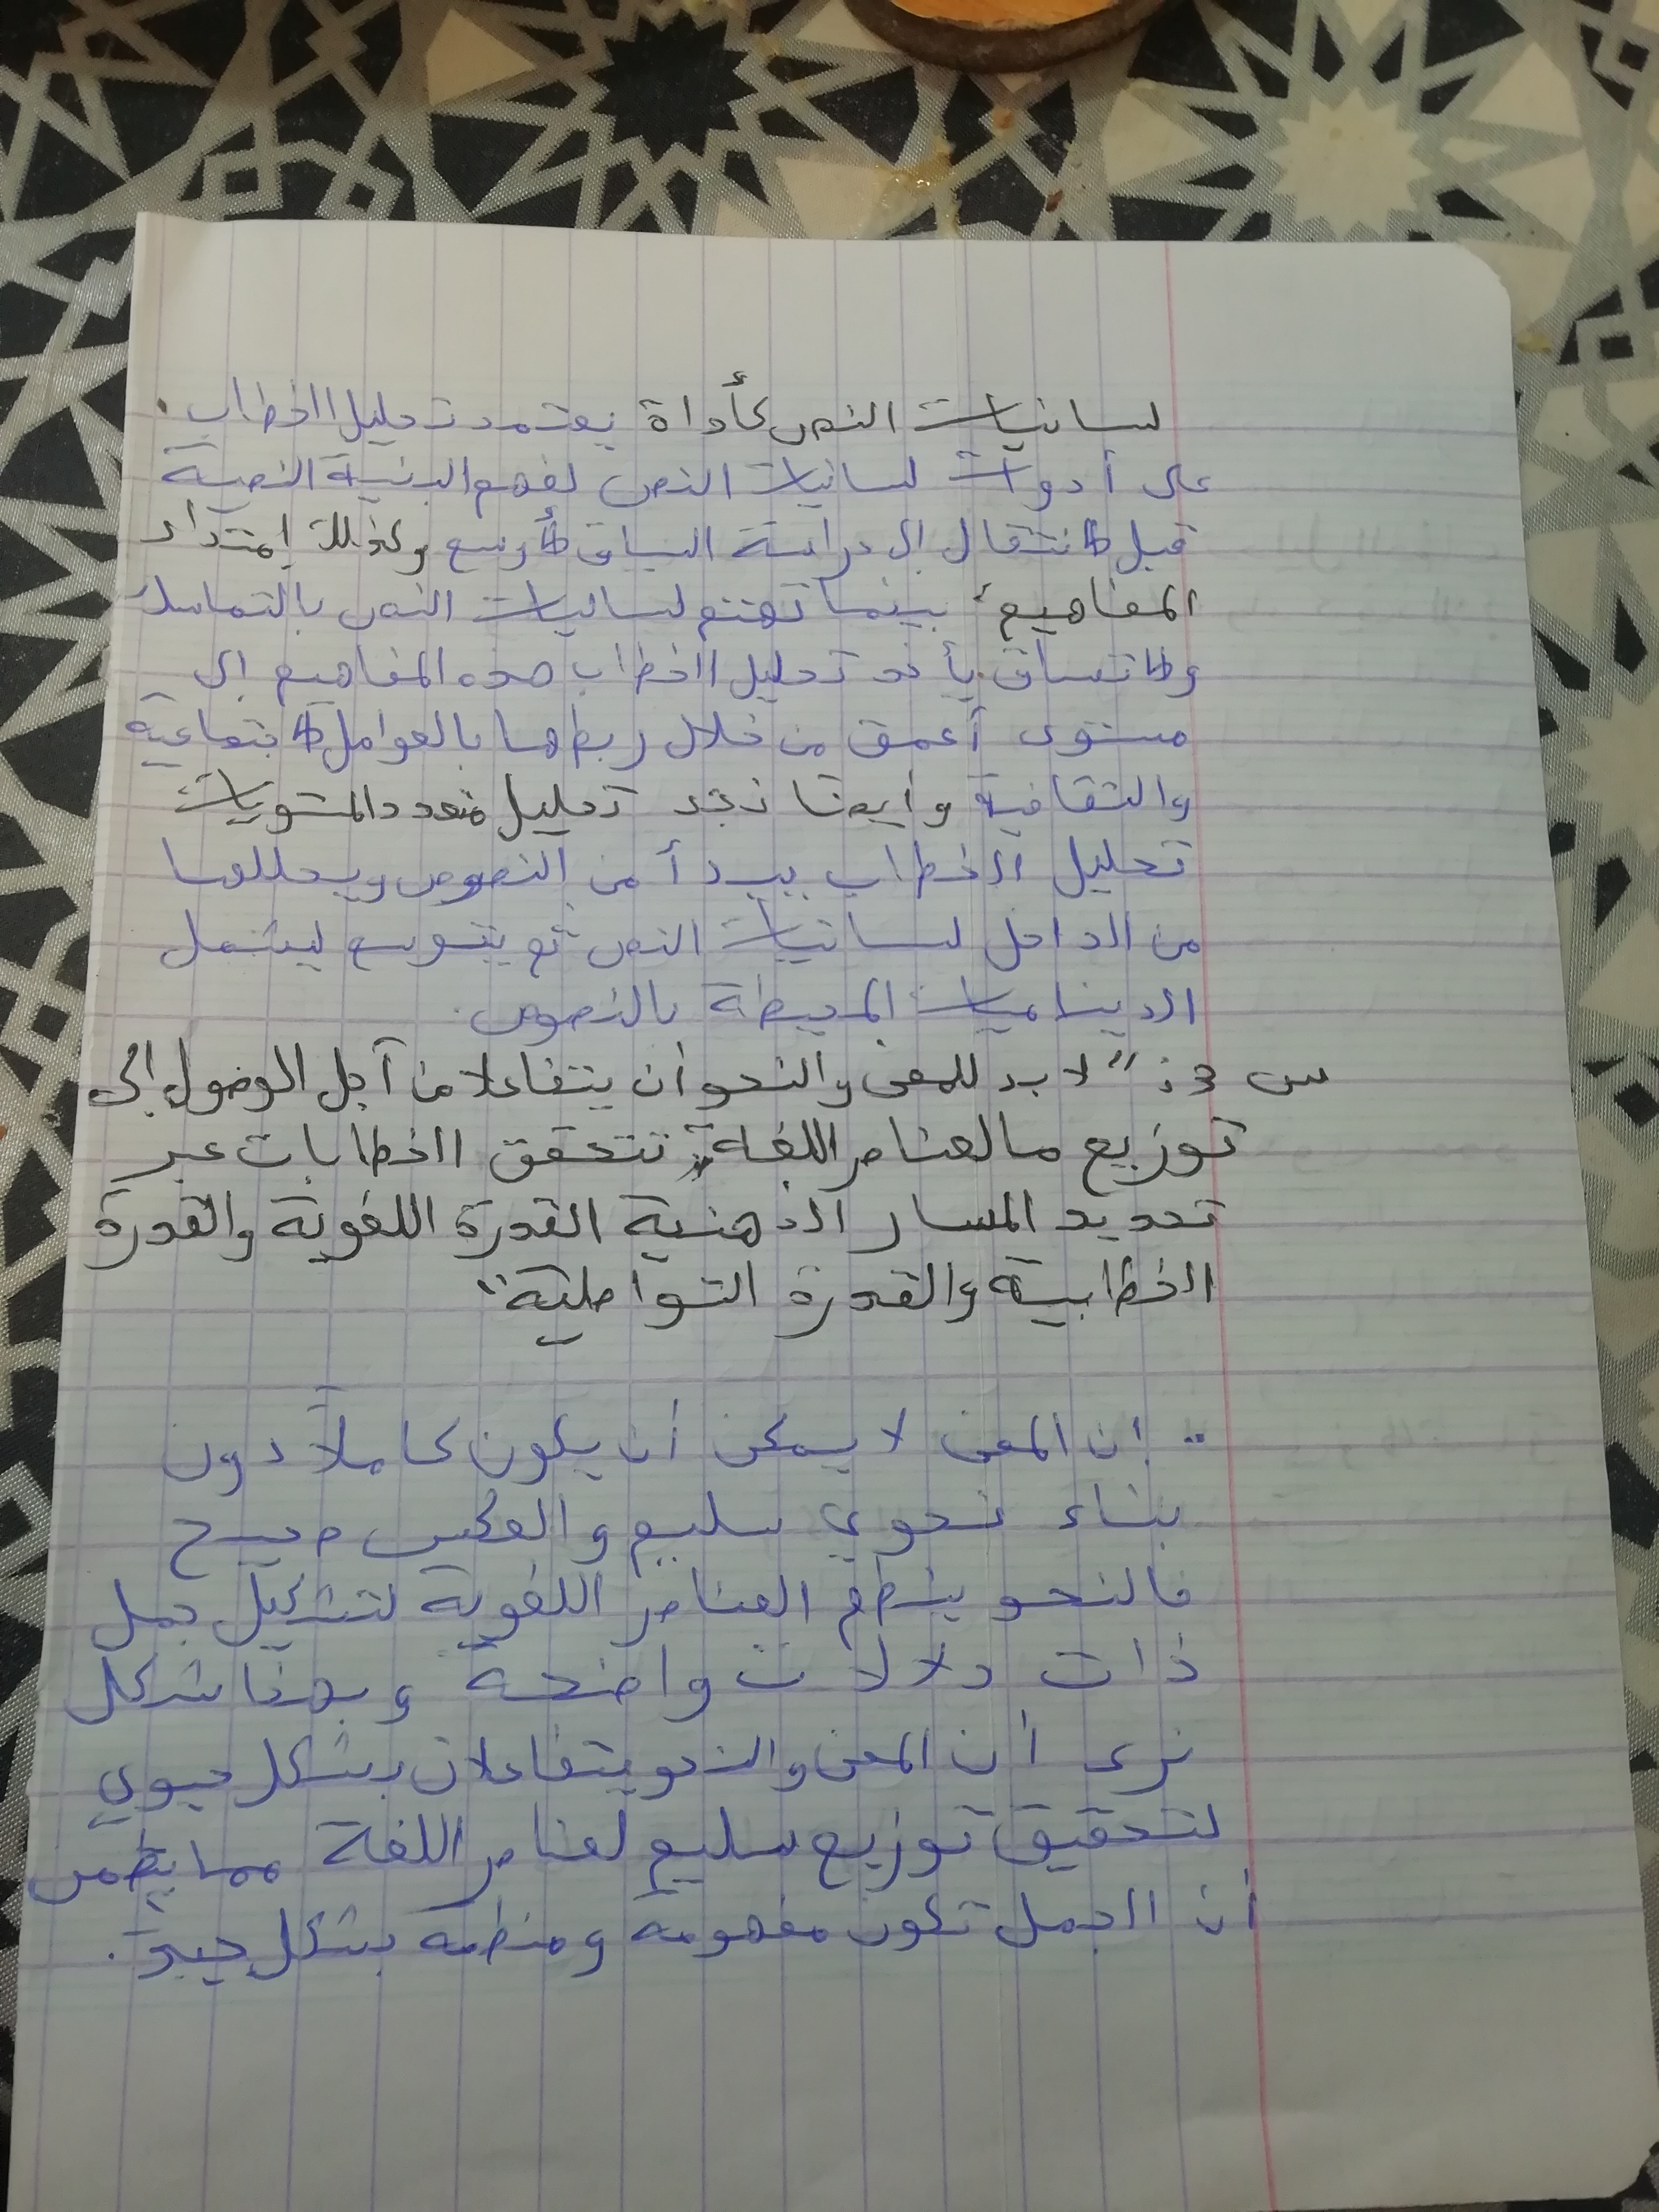 لسانيات النص كأداة يعتمد تحليل الخطاب
على أدوات لسانيات النص لفهم البنية النصية
قبل الانتقال إلى دراسة السياق الأوسع وكذلك إمتداد
المفاهيم، بينما تهتم لسانيات النص بالتماسك
والاتساق يأخد تحليل الخطاب هذه المفاهيم إلى
مستوى أعمق من خلال ربطها بالعوامل الاجتماعية
والثقافية وأيضا نجد تحليل متعدد المستويات
تحليل الخطاب يبدأ من النصوص ويحللها
من الداخل لسانيات النص ثم يتوسع ليشمل
الديناميات المحيطة بالنصوص.
س 3: "لا بد للمعنى والنحو أن يتفاعلا من آجل الوصول إلى
توزيع ما لعناصر اللغة، تتحقق الخطابات عبر
تحديد المسار الذهنية القدرة اللغوية والقدرة
الخطابية والقدرة التواصلية"
.. إن المعنى لا يمكن أن يكون كاملاً دون
بناء نحوي سليم والعكس صحيح
فالنحو ينظم العناصر اللغوية لتشكيل جمل
ذات دلالات واضحة وبهذا شكل
نرى أن المعنى والنحو يتفاعلان بشكل حيوي
لتحقيق توزيع سليم لعناصر اللغة مما يظمن
أن الجمل تكون مفهومة ومنظمة بشكل جيد.